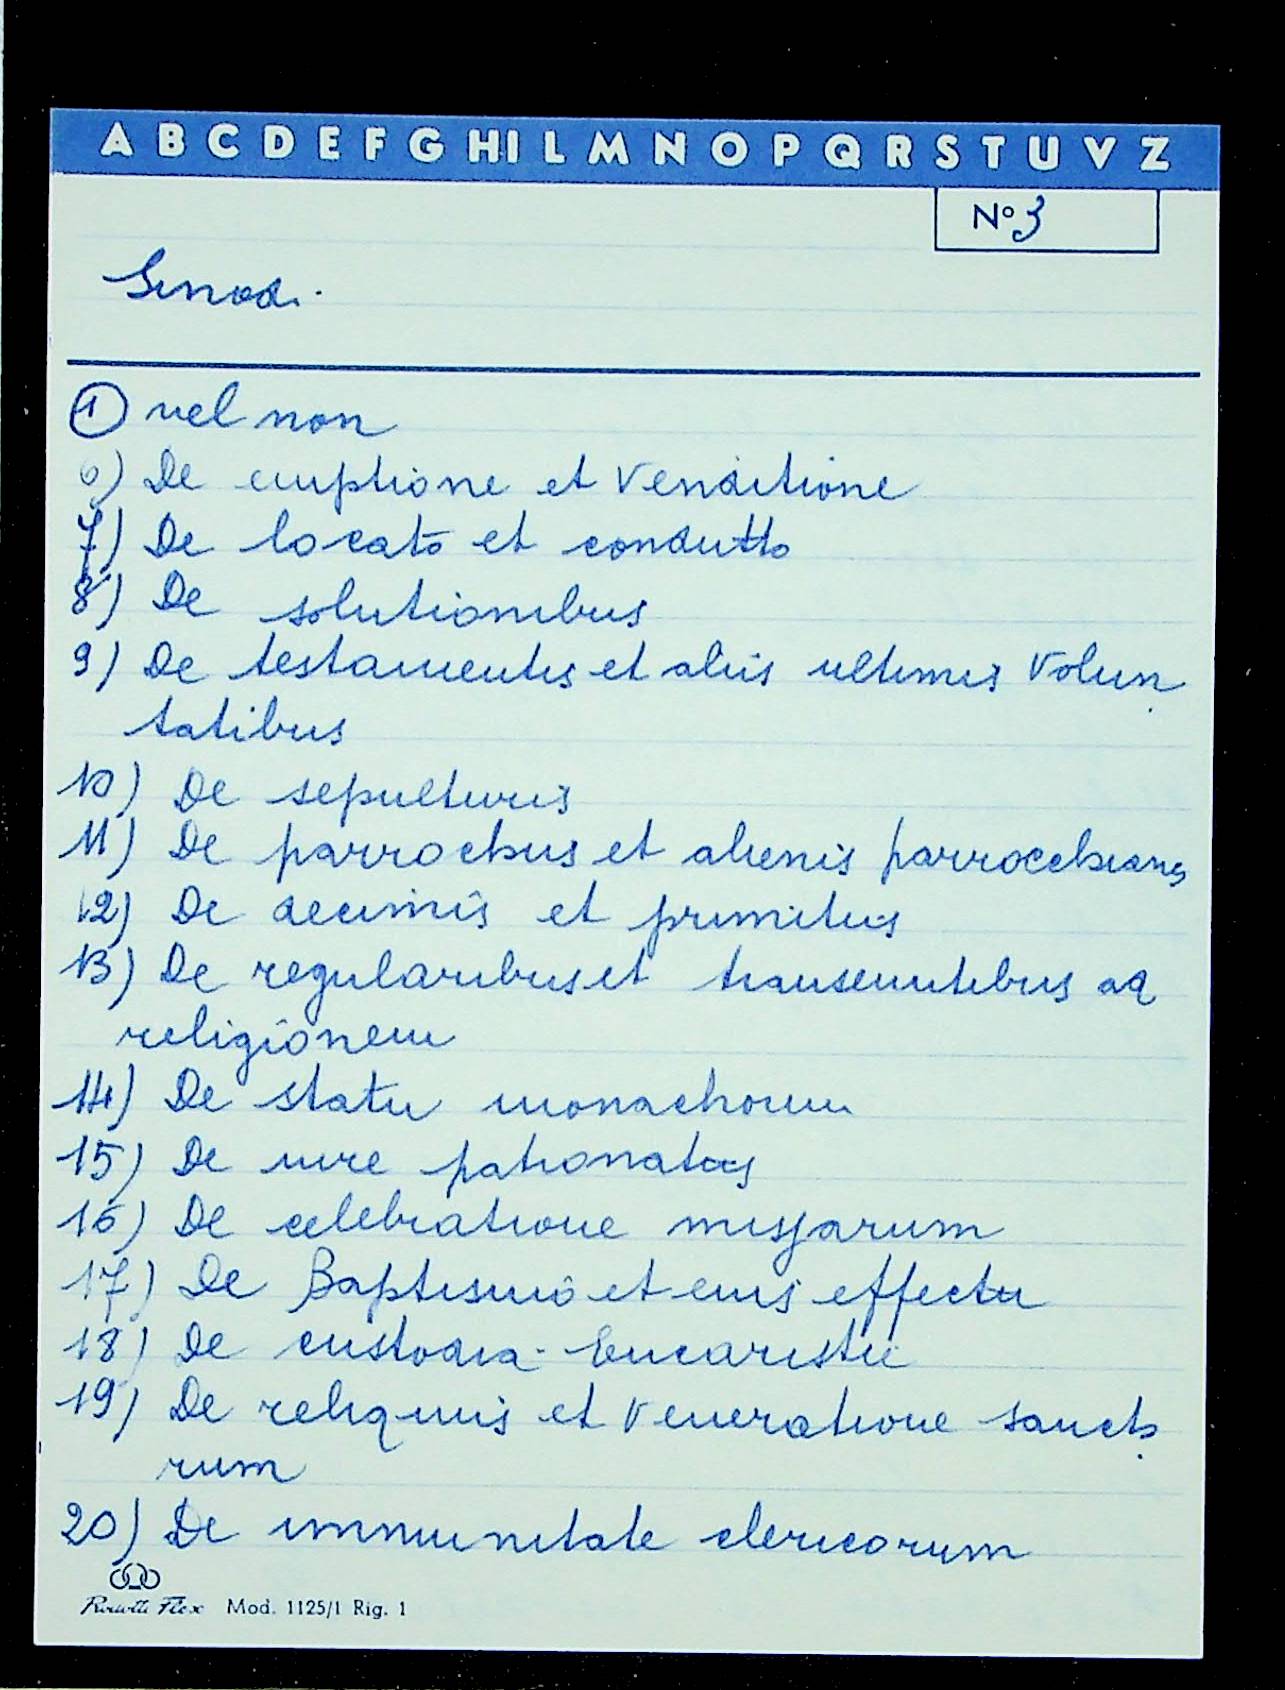 A B C D E F G H I L M N O P Q R S T U V Z
N° 3
Sinodi.
1 vel non
6) De emptione et Venditione
7) De locato et condutto
8) De solutionibus
9) De testamentis et aliis ultimis Volun
tatibus
10) De sepulturis
11) De parrochus et alienis parrochianis
12) De decimis et primitiis
13) De regularibus et transeuntibus ad
religionem
14) De statu monachorum
15) De iure patronatus
16) De celebratione missarum
17) De Baptismo et eius effectu
18) De custodia Eucaristie
19) De reliquiis et Veneratione sancto
rum
20) De immunitate clericorum
Flex Mod. 1125/1 Rig. 1